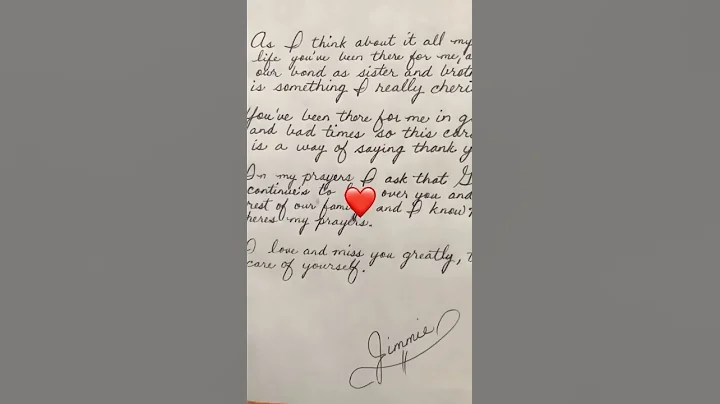 As I think about it all my
life you've been there for me, a
our bond as sister and broth
is something I really cheri
You've been there for me in g
and bad times so this car
is a way of saying thank y
In my prayers I ask that G
continue's to over you and
rest of our fami and I know
heres my prayers.
I love and miss you greatly, t
care of yourself.
Jimmie